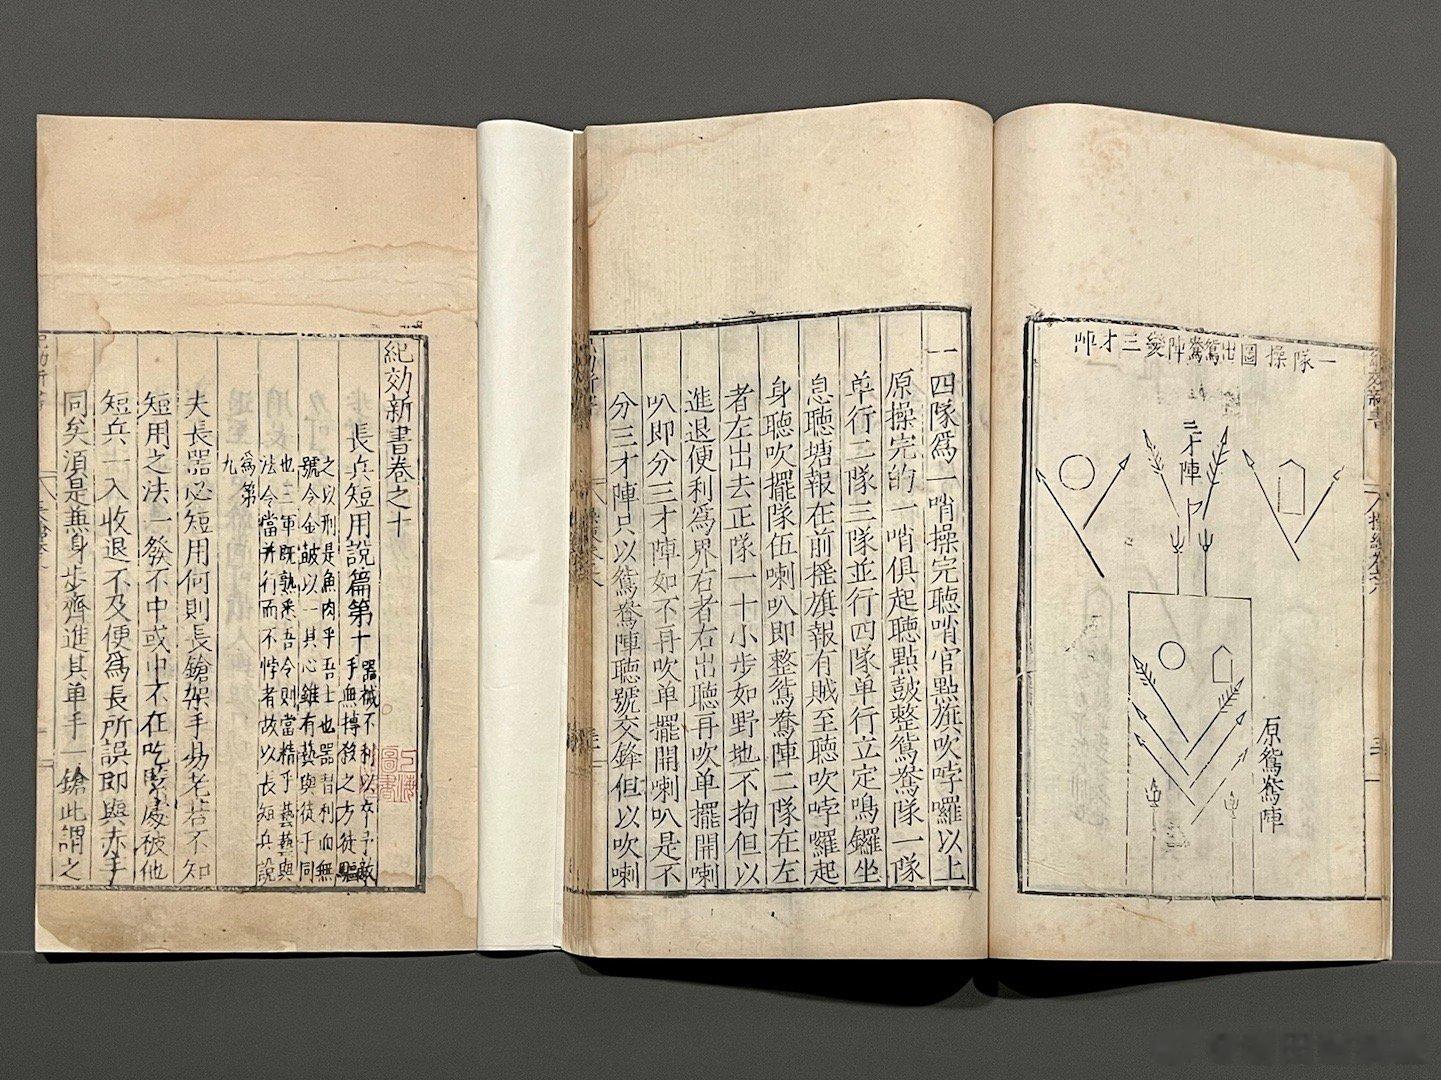 一隊操圖出鴛鴦陣變三才
三才陣
原鴛鴦陣
一四隊爲一哨操完聽哨官點旗吹哱囉以上
原操完的一哨俱起聽點鼓整鴛鴦隊一隊
单行二隊三隊並行四隊单行立定鳴鑼坐
息聽塘報在前摇旗報有賊至聽吹哱囉起
身聽吹擺隊伍喇叭即整鴛鴦陣二隊在左
者左出去正隊一十小步如野地不拘但以
進退便利爲界右者右出聽再吹单擺開喇
叭即分三才陣如不再吹单擺開喇叭是不
分三才陣只以鴛鴦陣聽號交鋒但以吹喇
紀効新書卷之十
長兵短用説篇第十
器械不利以卒予敵
手無搏殺之方徒驅
之以刑是魚肉乎吾士也器習利而無
號令金鼓以一其心雖有藝與徒手同
也三軍既熟悉吾令則當精乎藝藝與
法令當并行而不悖者故以長短兵説
爲第
九
夫長器必短用何則長鎗架手易老若不知
短用之法一發不中或中不在吃緊處被他
短兵一入收退不及便爲長所誤即與赤手
同矣須是兼身步齊進其单手一鎗此謂之